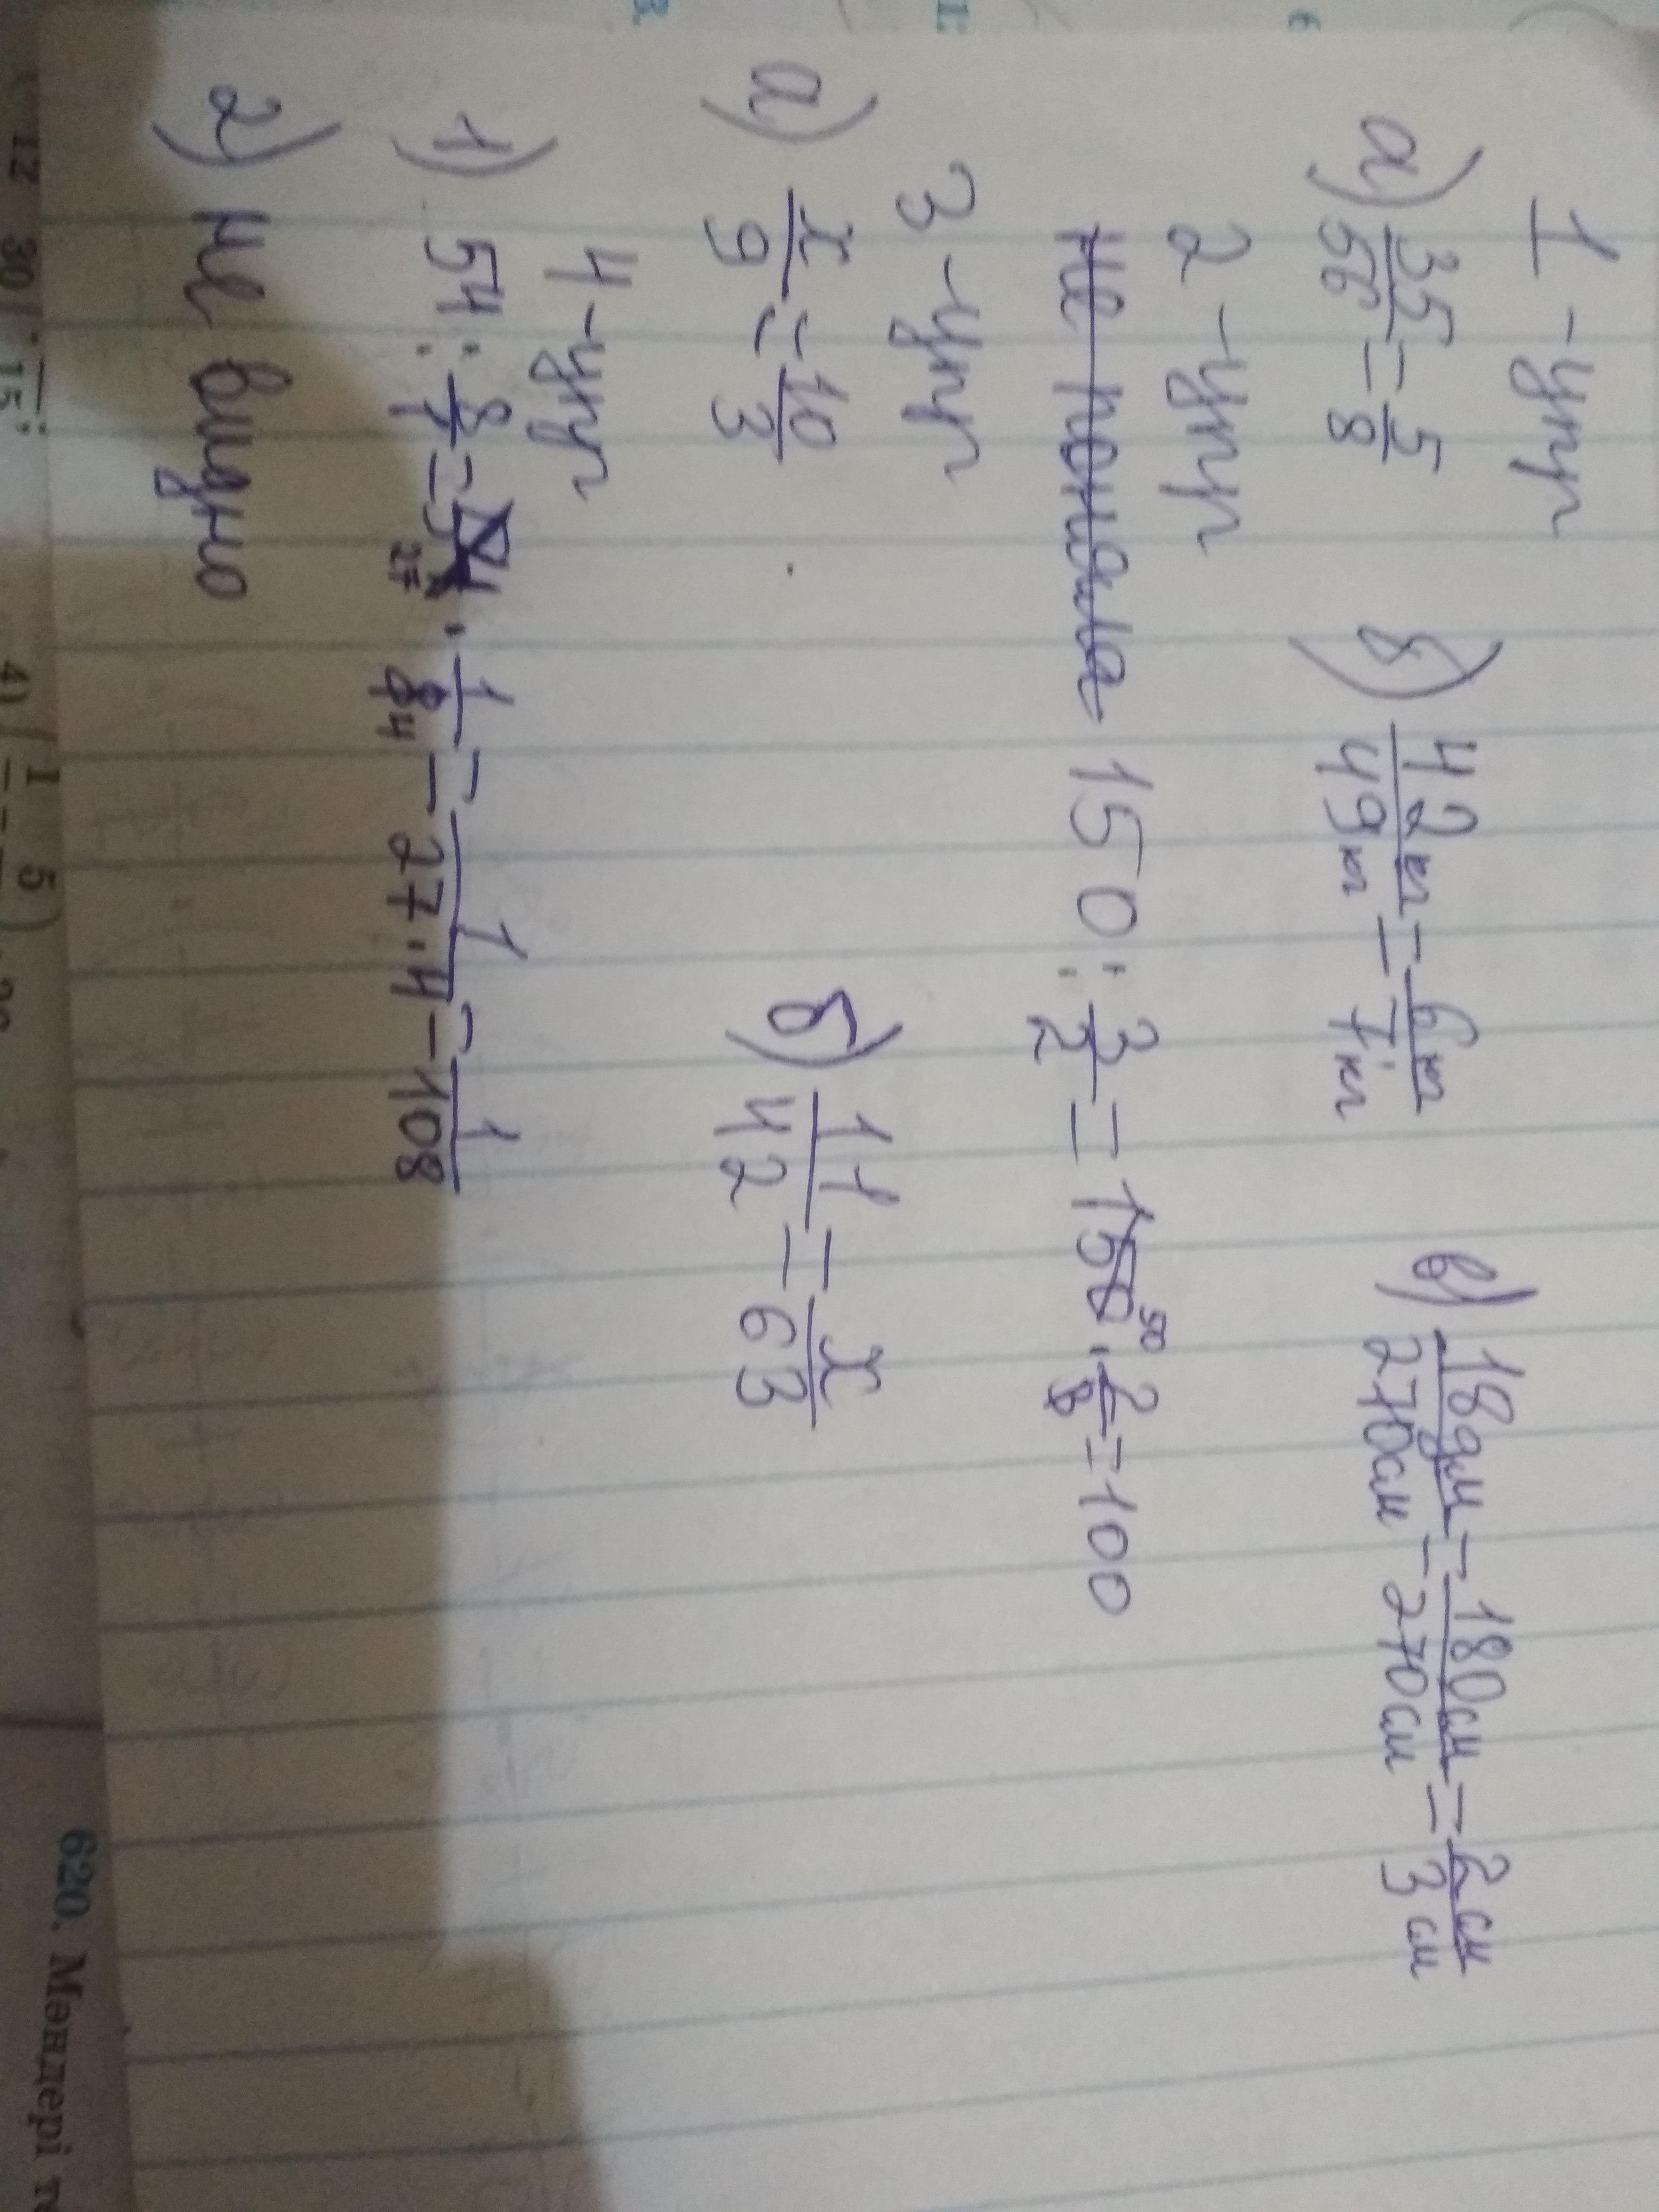 1-упр
а) 35/56 = 5/8 б) 42кг/49кг = 6кг/7кг в) 18дм/270см = 180см/270см = 2см/3см
2-упр
не поняла 150 : 3/2 = 150 50 · 2/3 = 100
3-упр
а) x/9 = 10/3 б) 11/42 = x/63
4-упр
1) 54 : 8/1 = 54 27 · 1/8 4 = 1/27·4 = 1/108
2) не видно
12 30 15;
4) ( 1 5 )
620. Мәндері